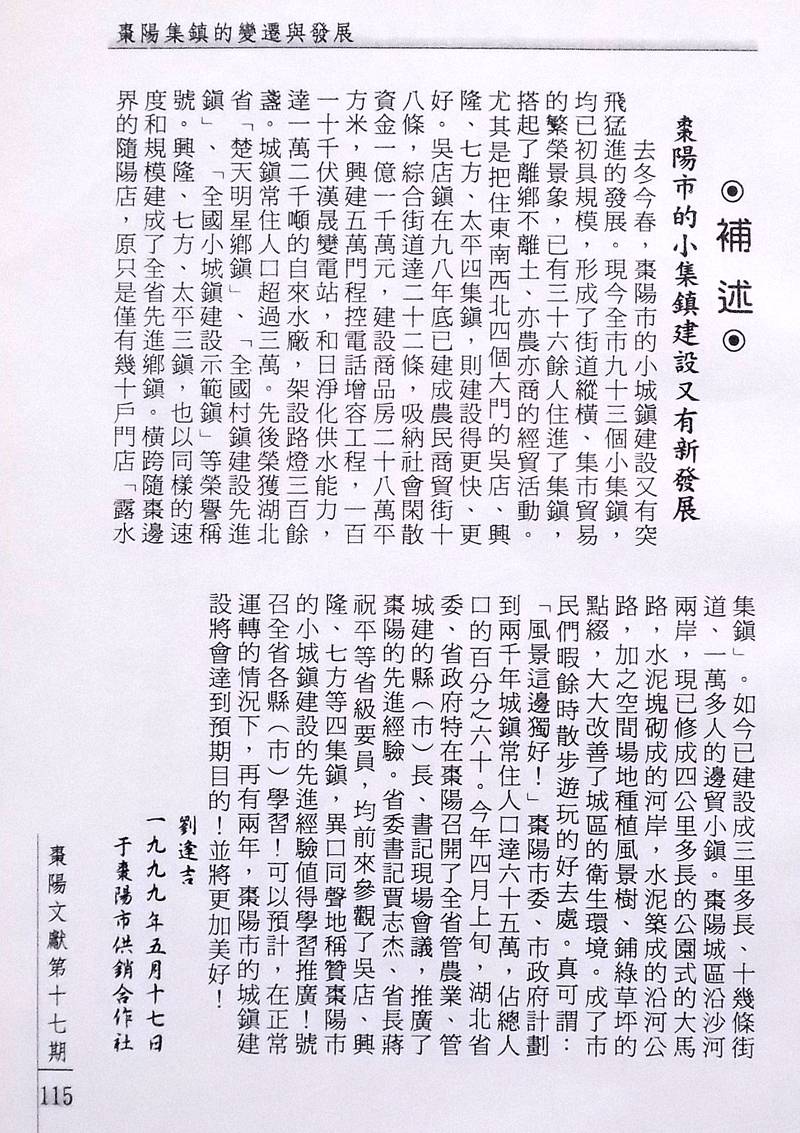 棗陽集鎮的變遷與發展
⊙補述⊙
棗陽市的小集鎮建設又有新發展
去冬今春，棗陽市的小城鎮建設又有突
飛猛進的發展。現今全市九十三個小集鎮，
均已初具規模，形成了街道縱橫、集市貿易
的繁榮景象，已有三十六餘人住進了集鎮，
搭起了離鄉不離土、亦農亦商的經貿活動。
尤其是把住東南西北四個大門的吳店、興
隆、七方、太平四集鎮，則建設得更快、更
好。吳店鎮在九八年底已建成農民商貿街十
八條，綜合街道達二十二條，吸納社會閑散
資金一億一千萬元，建設商品房二十八萬平
方米，興建五萬門程控電話增容工程，一百
一十千伏漢晟變電站，和日淨化供水能力，
達一萬二千噸的自來水廠，架設路燈三百餘
盞。城鎮常住人口超過三萬。先後榮獲湖北
省「楚天明星鄉鎮」、「全國村鎮建設先進
鎮」、「全國小城鎮建設示範鎮」等榮譽稱
號。興隆、七方、太平三鎮，也以同樣的速
度和規模建成了全省先進鄉鎮。橫跨隨棗邊
界的隨陽店，原只是僅有幾十戶門店「露水
集鎮」。如今已建設成三里多長、十幾條街
道、一萬多人的邊貿小鎮。棗陽城區沿沙河
兩岸，現已修成四公里多長的公園式的大馬
路，水泥塊砌成的河岸，水泥築成的沿河公
路，加之空間場地種植風景樹、鋪綠草坪的
點綴，大大改善了城區的衛生環境。成了市
民們暇餘時散步遊玩的好去處。真可謂：
「風景這邊獨好！」棗陽市委、市政府計劃
到兩千年城鎮常住人口達六十五萬，佔總人
口的百分之六十。今年四月上旬，湖北省
委、省政府特在棗陽召開了全省管農業、管
城建的縣（市）長、書記現場會議，推廣了
棗陽的先進經驗。省委書記賈志杰、省長蔣
祝平等省級要員，均前來參觀了吳店、興
隆、七方等四集鎮，異口同聲地稱贊棗陽市
的小城鎮建設的先進經驗值得學習推廣！號
召全省各縣（市）學習！可以預計，在正常
運轉的情況下，再有兩年，棗陽市的城鎮建
設將會達到預期目的！並將更加美好！
劉逢吉
一九九九年五月十七日
于棗陽市供銷合作社
棗陽文獻第十七期
115